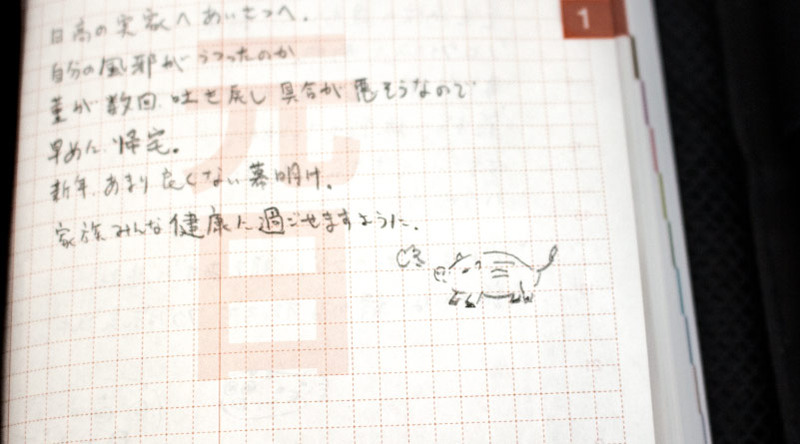 日高の実家へあいさつへ。
自分の風邪がうつったのか
菫が数回、吐き戻し具合が悪そうなので
早めに帰宅。
新年、あまり良くない幕明け。
家族みんな健康に過ごせますように。
元日
1